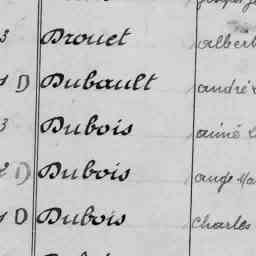 3 Drouet albert
D Dubault andré
3 Dubois aimé
D Dubois ange
D Dubois Charles